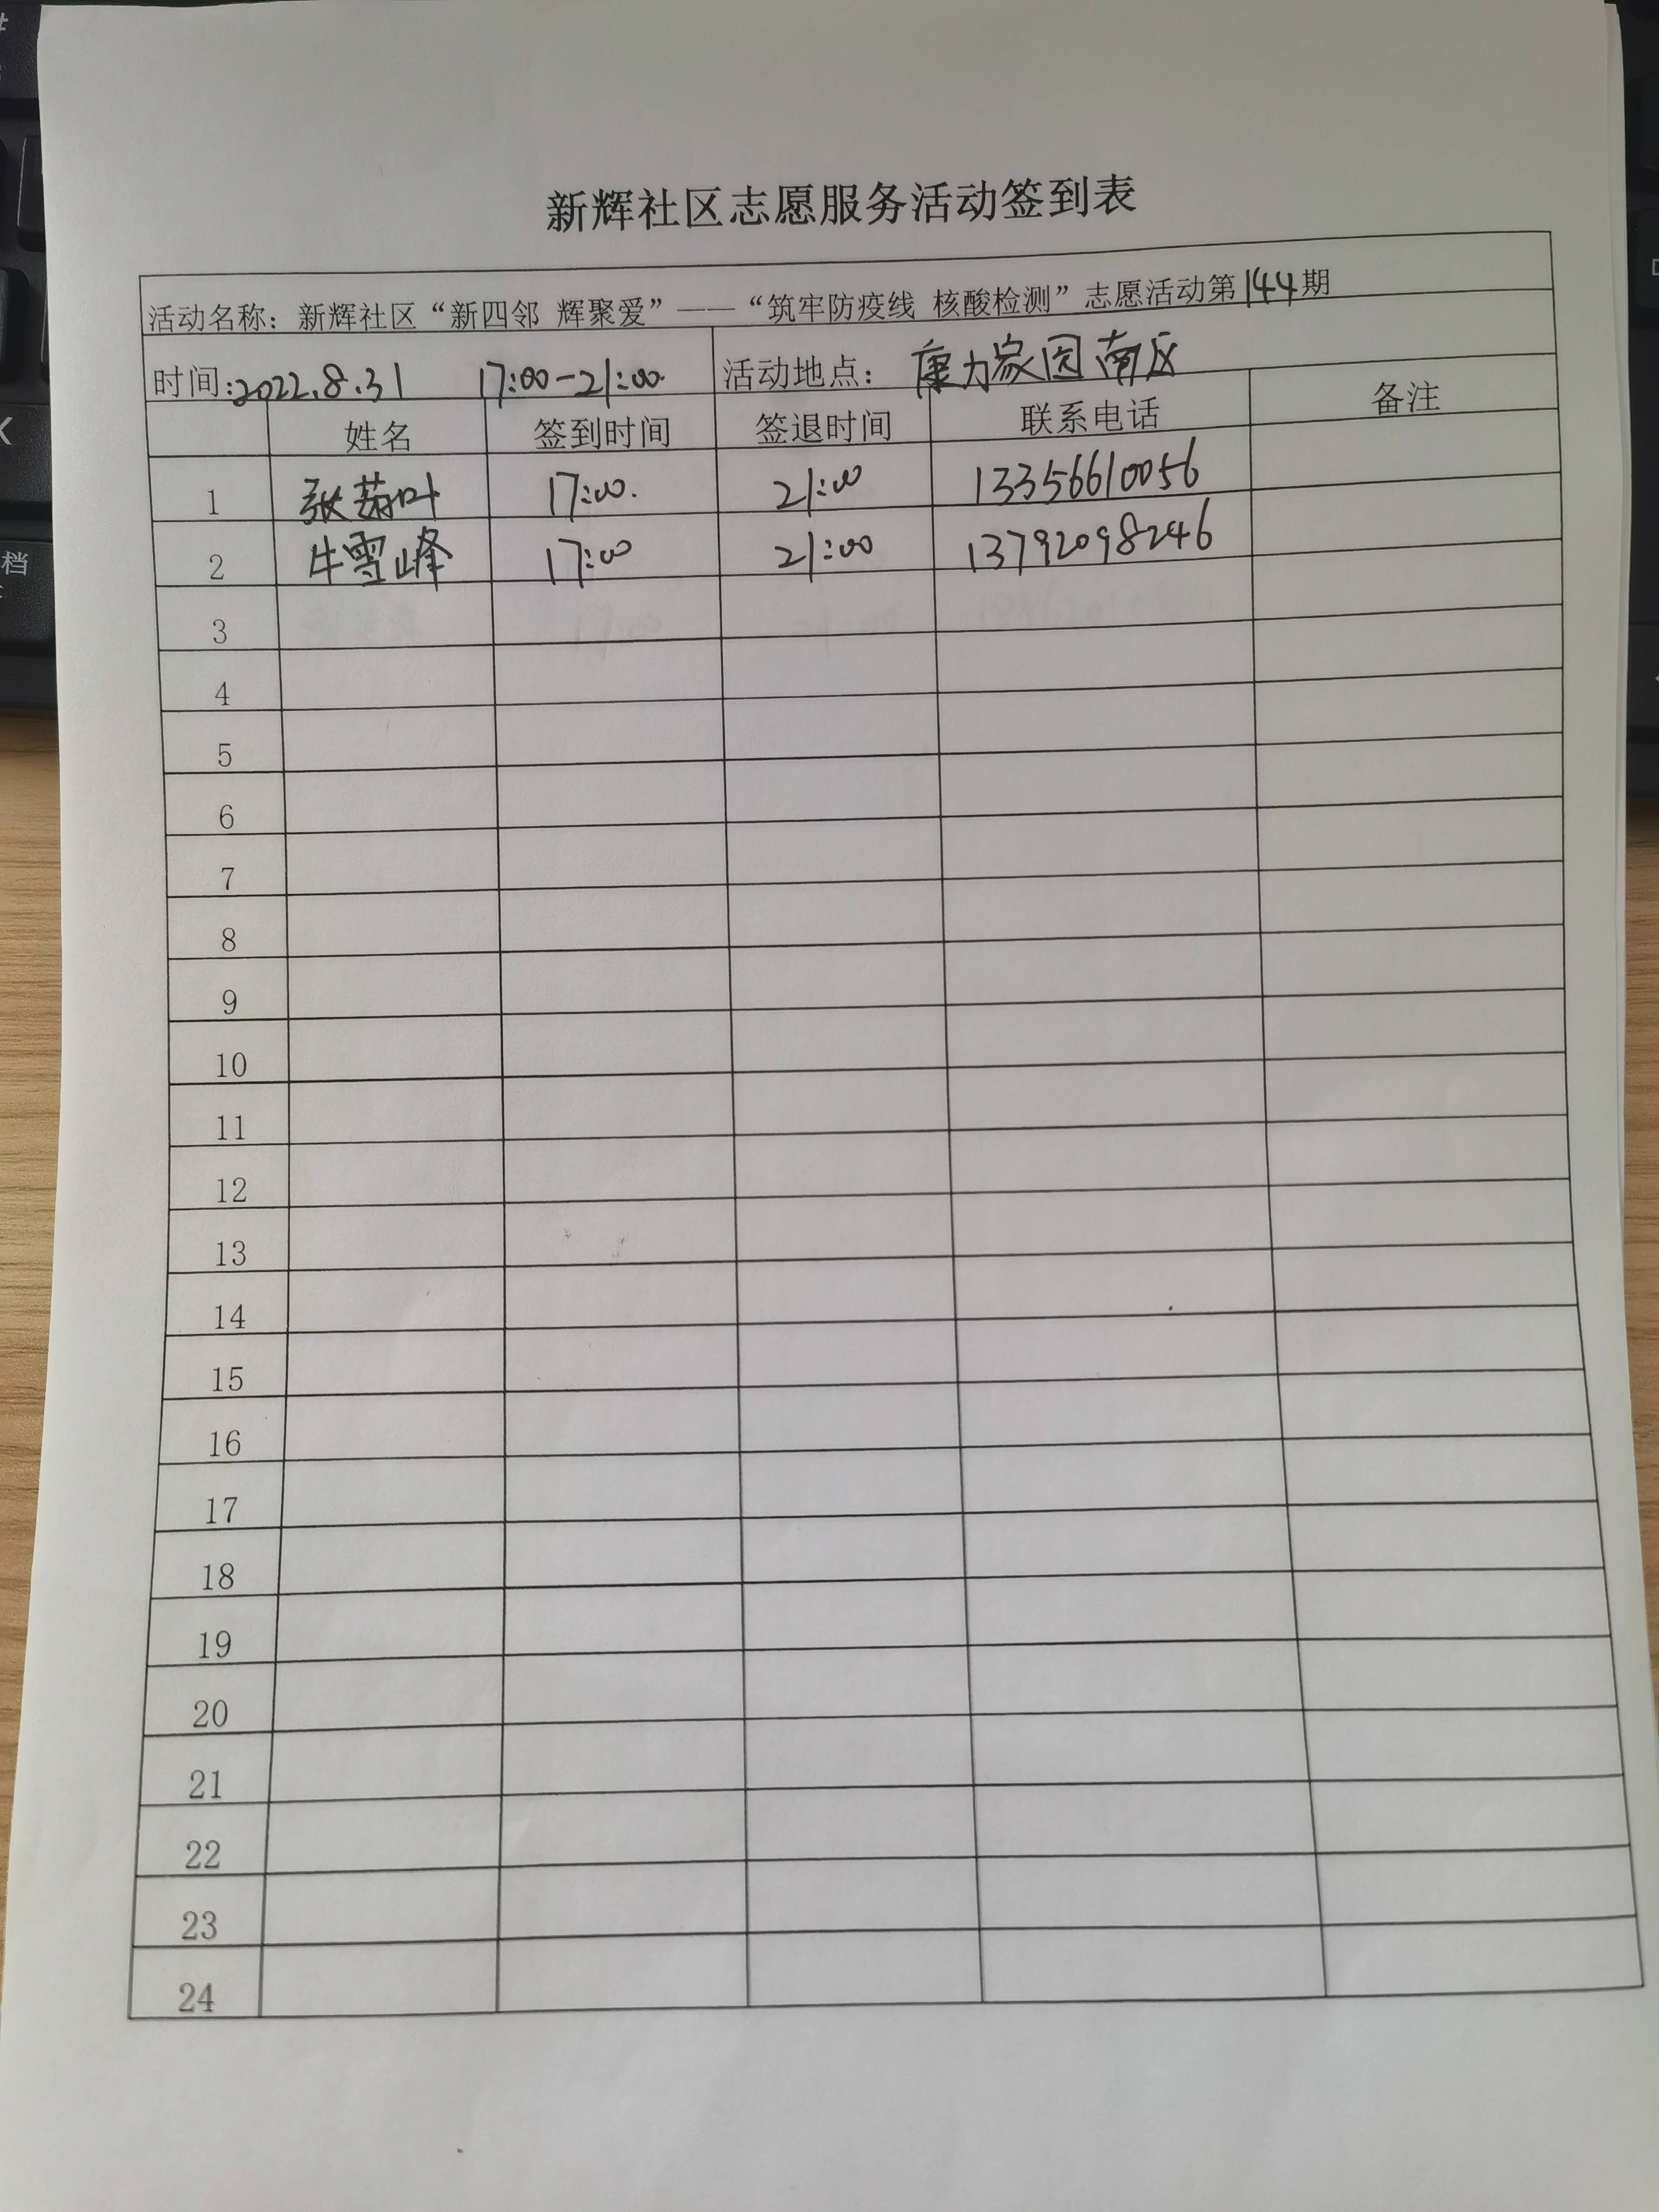 新辉社区志愿服务活动签到表
活动名称：新辉社区“新四邻 辉聚爱”——“筑牢防疫线 核酸检测”志愿活动第144期
时间:2022.8.31 17:00-21:00 活动地点：康力家园南区
姓名 签到时间 签退时间 联系电话 备注
1 张 叶 17:00. 21:00 13356610056
2 牛雪峰 17:00 21:00 13792098246
3
4
5
6
7
8
9
10
11
12
13
14
15
16
17
18
19
20
21
22
23
24